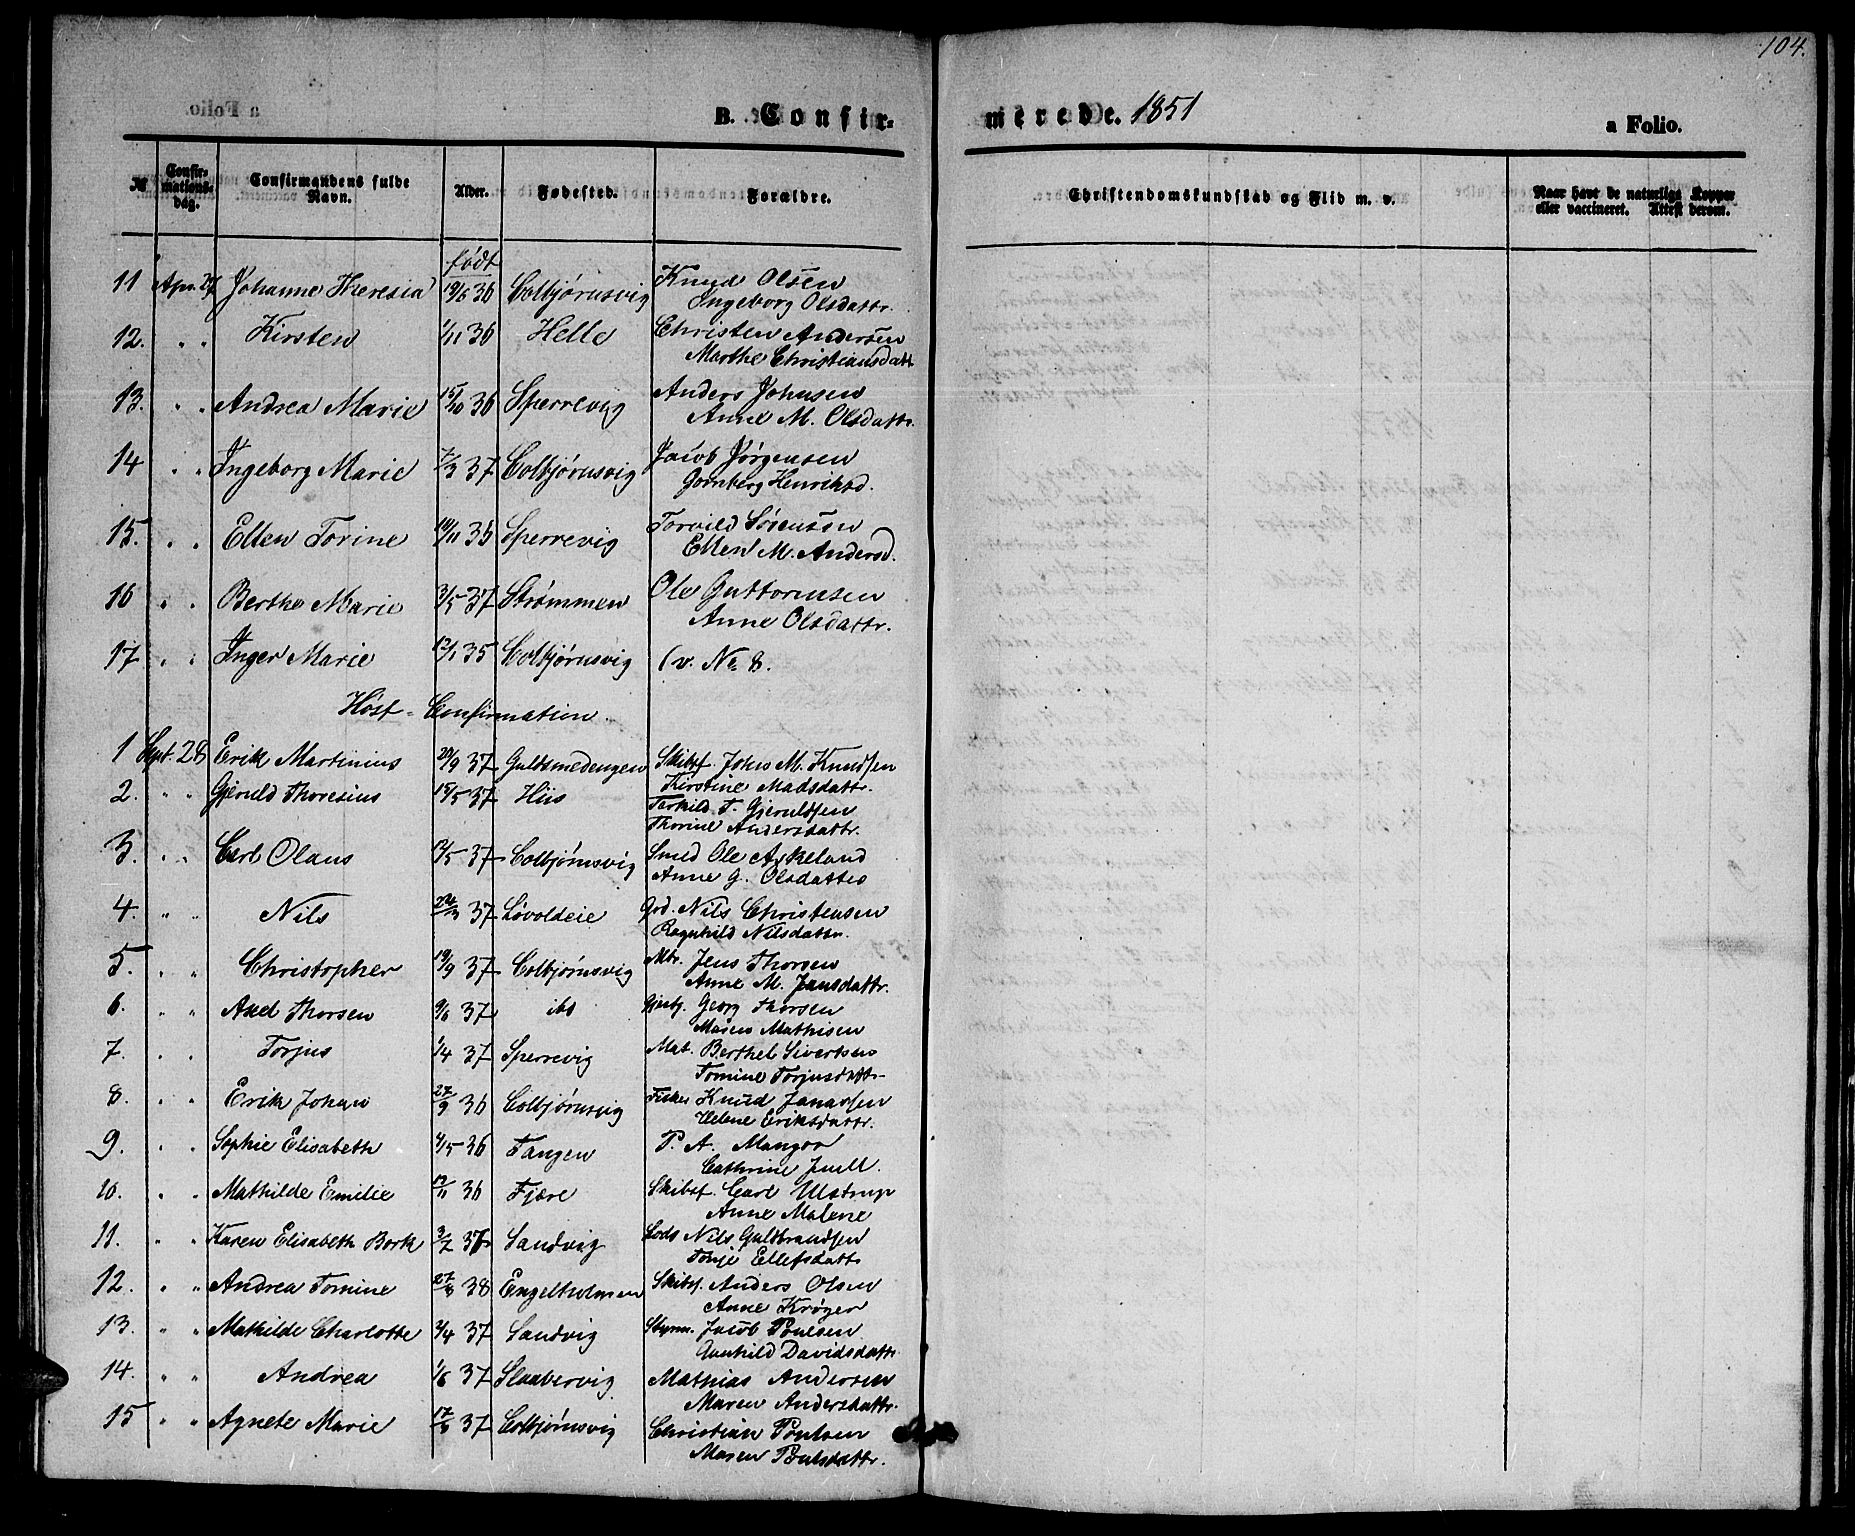 104.
B. Confir-
merede. 1851
a Folio.
№
Confir-
mations-
dag.
Confirmandens fulde
Navn.
Alder.
Fødested.
Forældre.
Christendomskundskab og Flid m. v.
Naar havt de naturlige Kopper
eller vaccineret. Attest derom.
født
11 Apr. 27 Johanne Theresia 19/6 36 Colbjørnsvig Knud Olsen
Ingeborg Olsdattr.
12. " " Kirsten 1/11 36 Helle Christen Andersen
Marthe Christiansdatt
13. " " Andrea Marie 15/10 36 Sperrevig Anders Johnsen
Anne M. Olsdattr.
14 " " Ingeborg Marie 7/3 37 Colbjørnsvig Jacob Jørgensen
Henriksd.
15. " " Ellen Torine 10/11 36 Sperrevig Torvild Sørensen
Ellen M. Andersd.
16 " " Berthe Marie 3/5 37 Strømmen Ole Guttormsen
Anne Olsdattr.
17 " " Inger Marie 12/1 35 Colbjørnsvig (v. No 8.
Høst-Confirmation.
1 Sept. 28 Erik Martinius 20/9 37 Guldsmedengen Skibsf. Johs M. Knudsen
Kirstine Madsdattr.
2. " " Gjeruld Thoresius 15/5 37 Hiis Tarkild T. Gjeruldsen
Thorine Andersdattr.
3. " " Carl Olaus 12/5 37 Colbjørnsvig Smed Ole Askeland
Anne G. Olsdatter
4. " " Nils 24/3 37 Løvoldeie Grd. Nils Christensen
Ragnhild Nilsdattr.
5. " " Christopher 19/9 37 Colbjørnsvig Mtr. Jens Thorsen
Anne M. Jensdattr.
6. " " Axel Thorsen 9/6 37 ibd Georg Thorsen
Maren Mathisen
7. " " Torjus 1/4 37 Sperrevig Mat. Berthel Sivertsen
Tomine Torjusdattr
8. " " Erik Johan 27/9 36 Colbjørnsvig Fisker Knud Janassen
Helene Eriksdattr.
9. " " Sophie Elisabeth 4/5 36 Tangen P. A. Mangor
Cathrine Juell.
10. " " Mathilde Emilie 12/11 36 Fjære Skibsf. Carl Ulstrup
Anne Malene
11. " " Karen Elisabeth Bork 3/2 36 Sandvig Lods Nils Guldbrandsen
Tonje Ellefsdattr
12. " " Andrea Tomine 27/8 38 Engelholmen Skibsf. Anders Olsen
Anne Krøger
13. " " Mathilde Charlotte 4/4 37 Sandvig Styrm. Jacob Poulsen
Gunhild Davidsdattr
14. " " Andrea 1/6 37 Slaabervig Mathias Andersen
Maren Andersdattr.
15 " " Agnete Marie 17/6 37 Colbjørnsvig Christian Poulsen
Maren Poulsdattr.